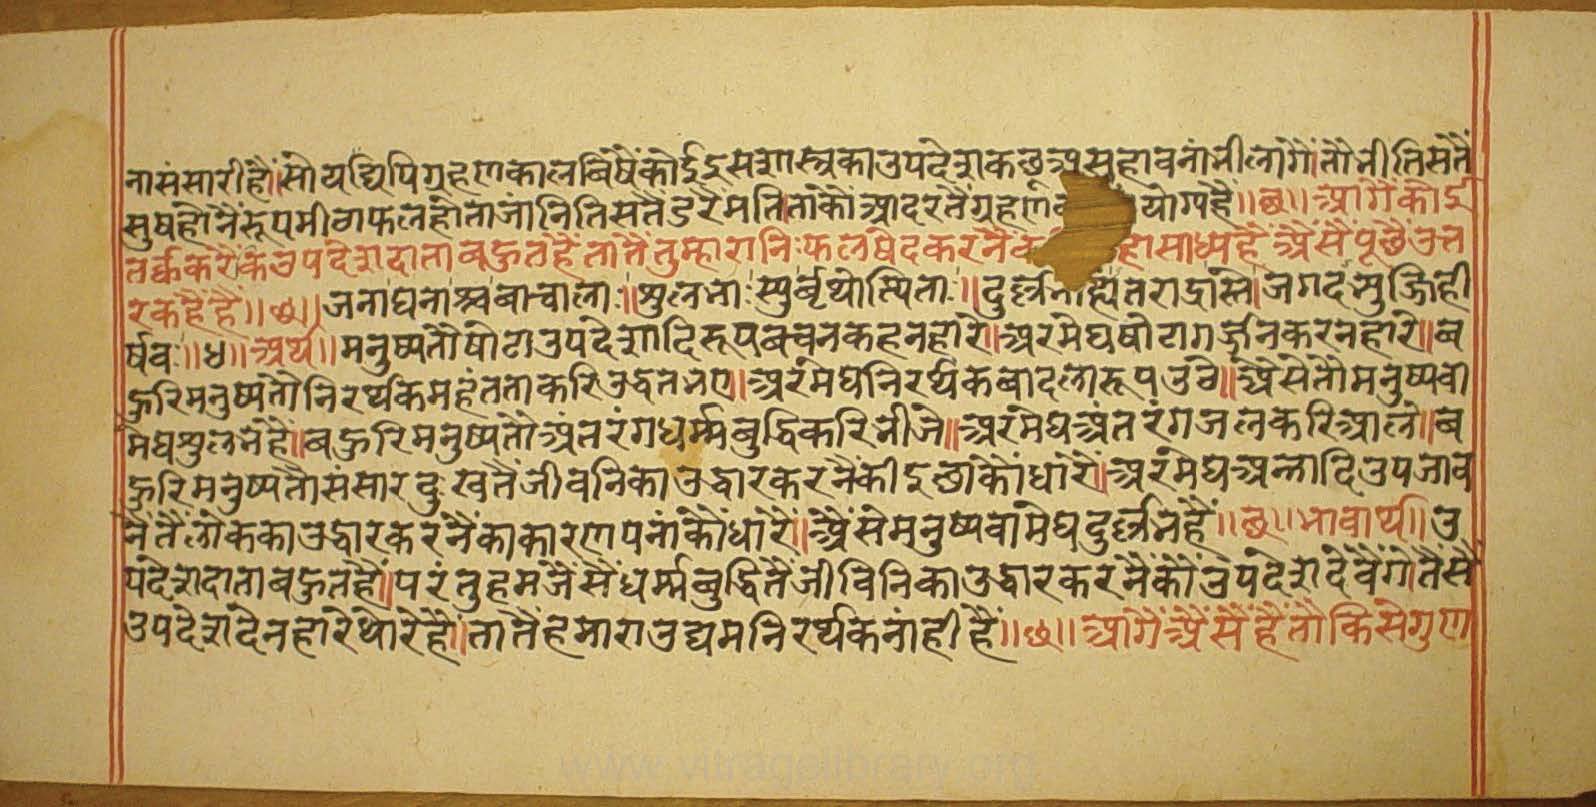 नासंसारीहै॥सोयद्यिपिग्रहणकालबिषैंकोईइसशास्त्रकाउपदेशकछूअसुहावनांभीलागैगातौभीतिसतैं
सुषहोनैंरूपमीठाफलहोताजांनितिसतैंडरैमति॥तांकौंआदरतैंग्रहण योग्यहै॥छ॥आगैंकोई
तर्ककरैकिउपदेशदातावहुतहैंतातैंतुम्हारानिःफलषेदकरनैं हासाध्यहैंअैसैंपूछैंउत्त
रकहैहैं॥छ॥जनाघनाश्चवाचालाः॥सुलभाःस्युर्वृथोत्थिताः॥दुर्ल्लभाह्यंतरार्द्रास्ते॥जगदभ्युज्जिही
र्षवः॥४॥अर्थ॥मनुष्यतौषोटाउपदेशादिरूपबचनकहनहारे॥अरमेघषोटागर्ज्जनकरनहारे॥ब
हुरिमनुष्यतौनिरर्थकमहंतताकरिउद्धतभए॥अरमेघनिरर्थकबादलारूपउठे॥अैसेतौमनुष्यवा
मेघसुलभहैं॥बहुरिमनुष्यतौअंतरंगधर्म्मबुद्धिकरिभीजे॥अरमेघअंतरंगजलकरिआले॥ब
हुरिमनुष्यतौसंसारदुःखतैंजीवनिकाउद्धारकरनैंकीइछाकौंधारैं॥अरमेघअन्नादिउपजाव
नैंतैंलोककाउद्धारकरनैंकाकारणपनांकौंधारैं॥अैसेमनुष्यवामेघदुर्ल्लभहैं॥छ॥भावार्थ॥उ
पदेशदातावहुतहैं॥परंतुहमजैसैंधर्म्मबुद्धितैंजीवनिकाउद्धारकरनैंकौंउपदेशदेवैंगेतैसे
उपदेशदेनहारेथोरेहैं॥तातैंहमाराउद्यमनिरर्थकनांहीहैं॥छ॥आगैंअैसैंहैंतौकिसेगुण